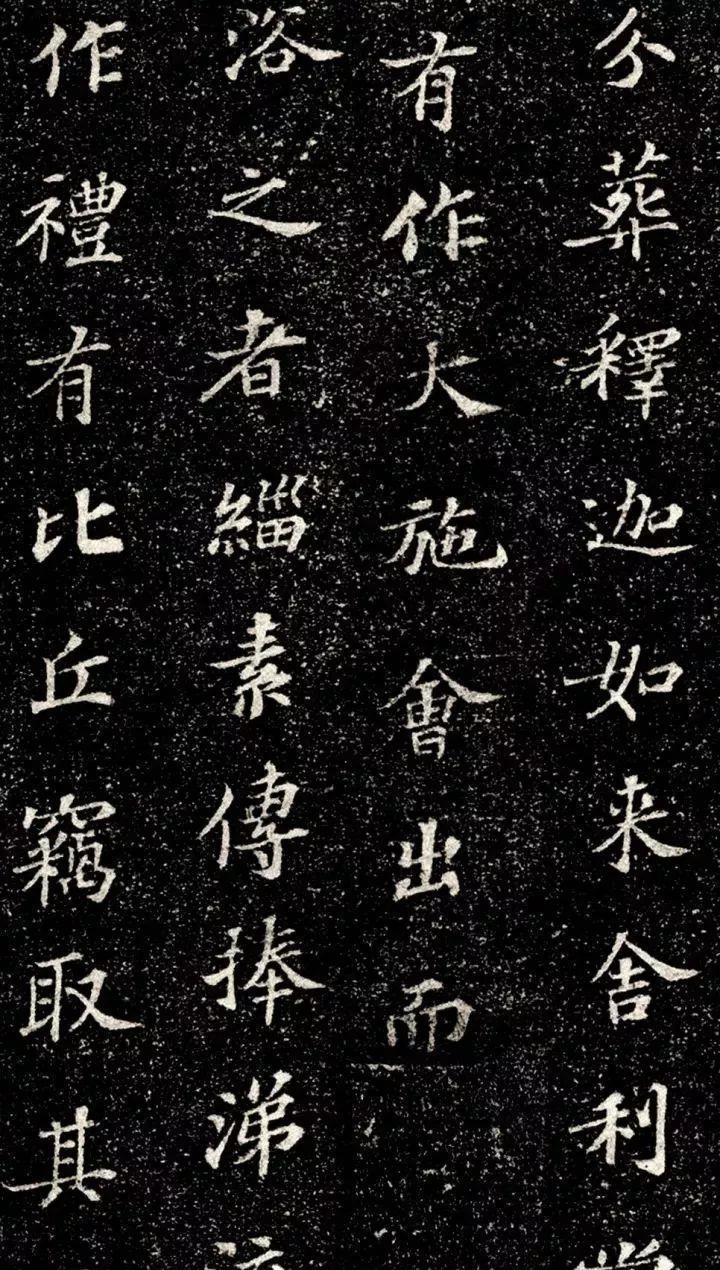 分葬釋迦如来舍利甞
有作大施會出而
浴之者緇素傳捧涕
作禮有比丘竊取其